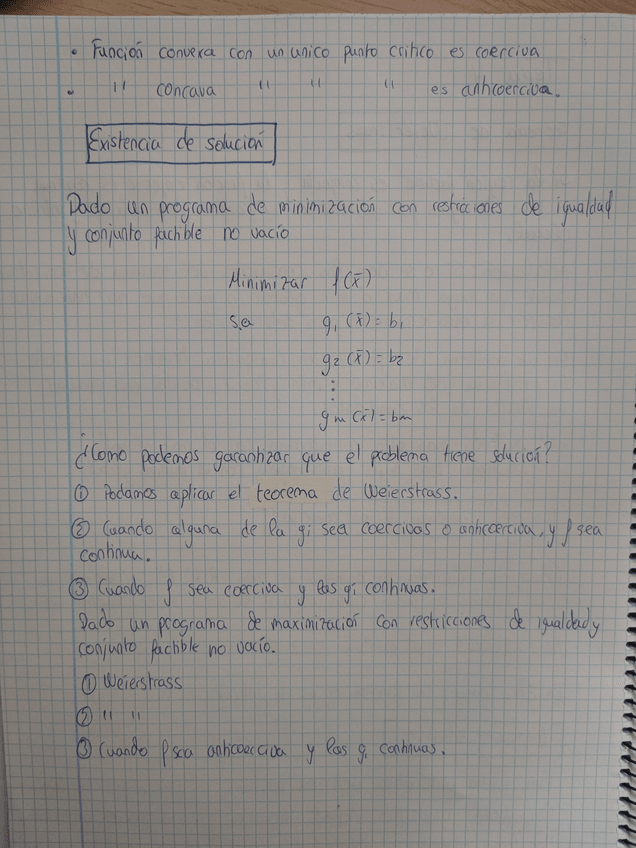 • Función convexa con un unico punto crítico es coerciva
• " concava " " " es anticoerciva.
Existencia de solución
Dado un programa de minimización con restricciones de igualdad
y conjunto factible no vacío
Minimizar f(x̄)
s.a g₁(x̄) = b₁
g₂(x̄) = b₂
⋮
gm(x̄) = bm
¿Como podemos garantizar que el problema tiene solución?
① Podamos aplicar el teorema de Weierstrass.
② Cuando alguna de la gᵢ sea coercivas o anticoerciva, y f sea
continua.
③ Cuando f sea coerciva y las gᵢ continuas.
Dado un programa de maximización con restricciones de igualdad y
conjunto factible no vacío.
① Weierstrass
② " "
③ Cuando f sea anticoerciva y las gᵢ continuas.